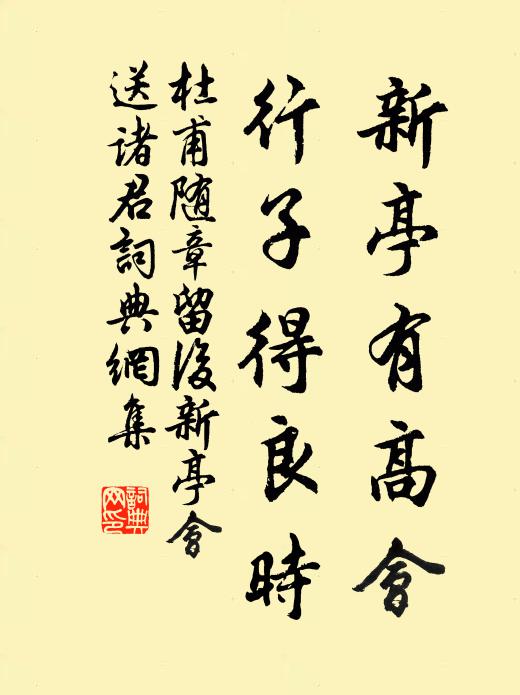 新亭有高會
行子得良時
杜甫随章留後新亭會
送诸君詞典網集
詞典网印